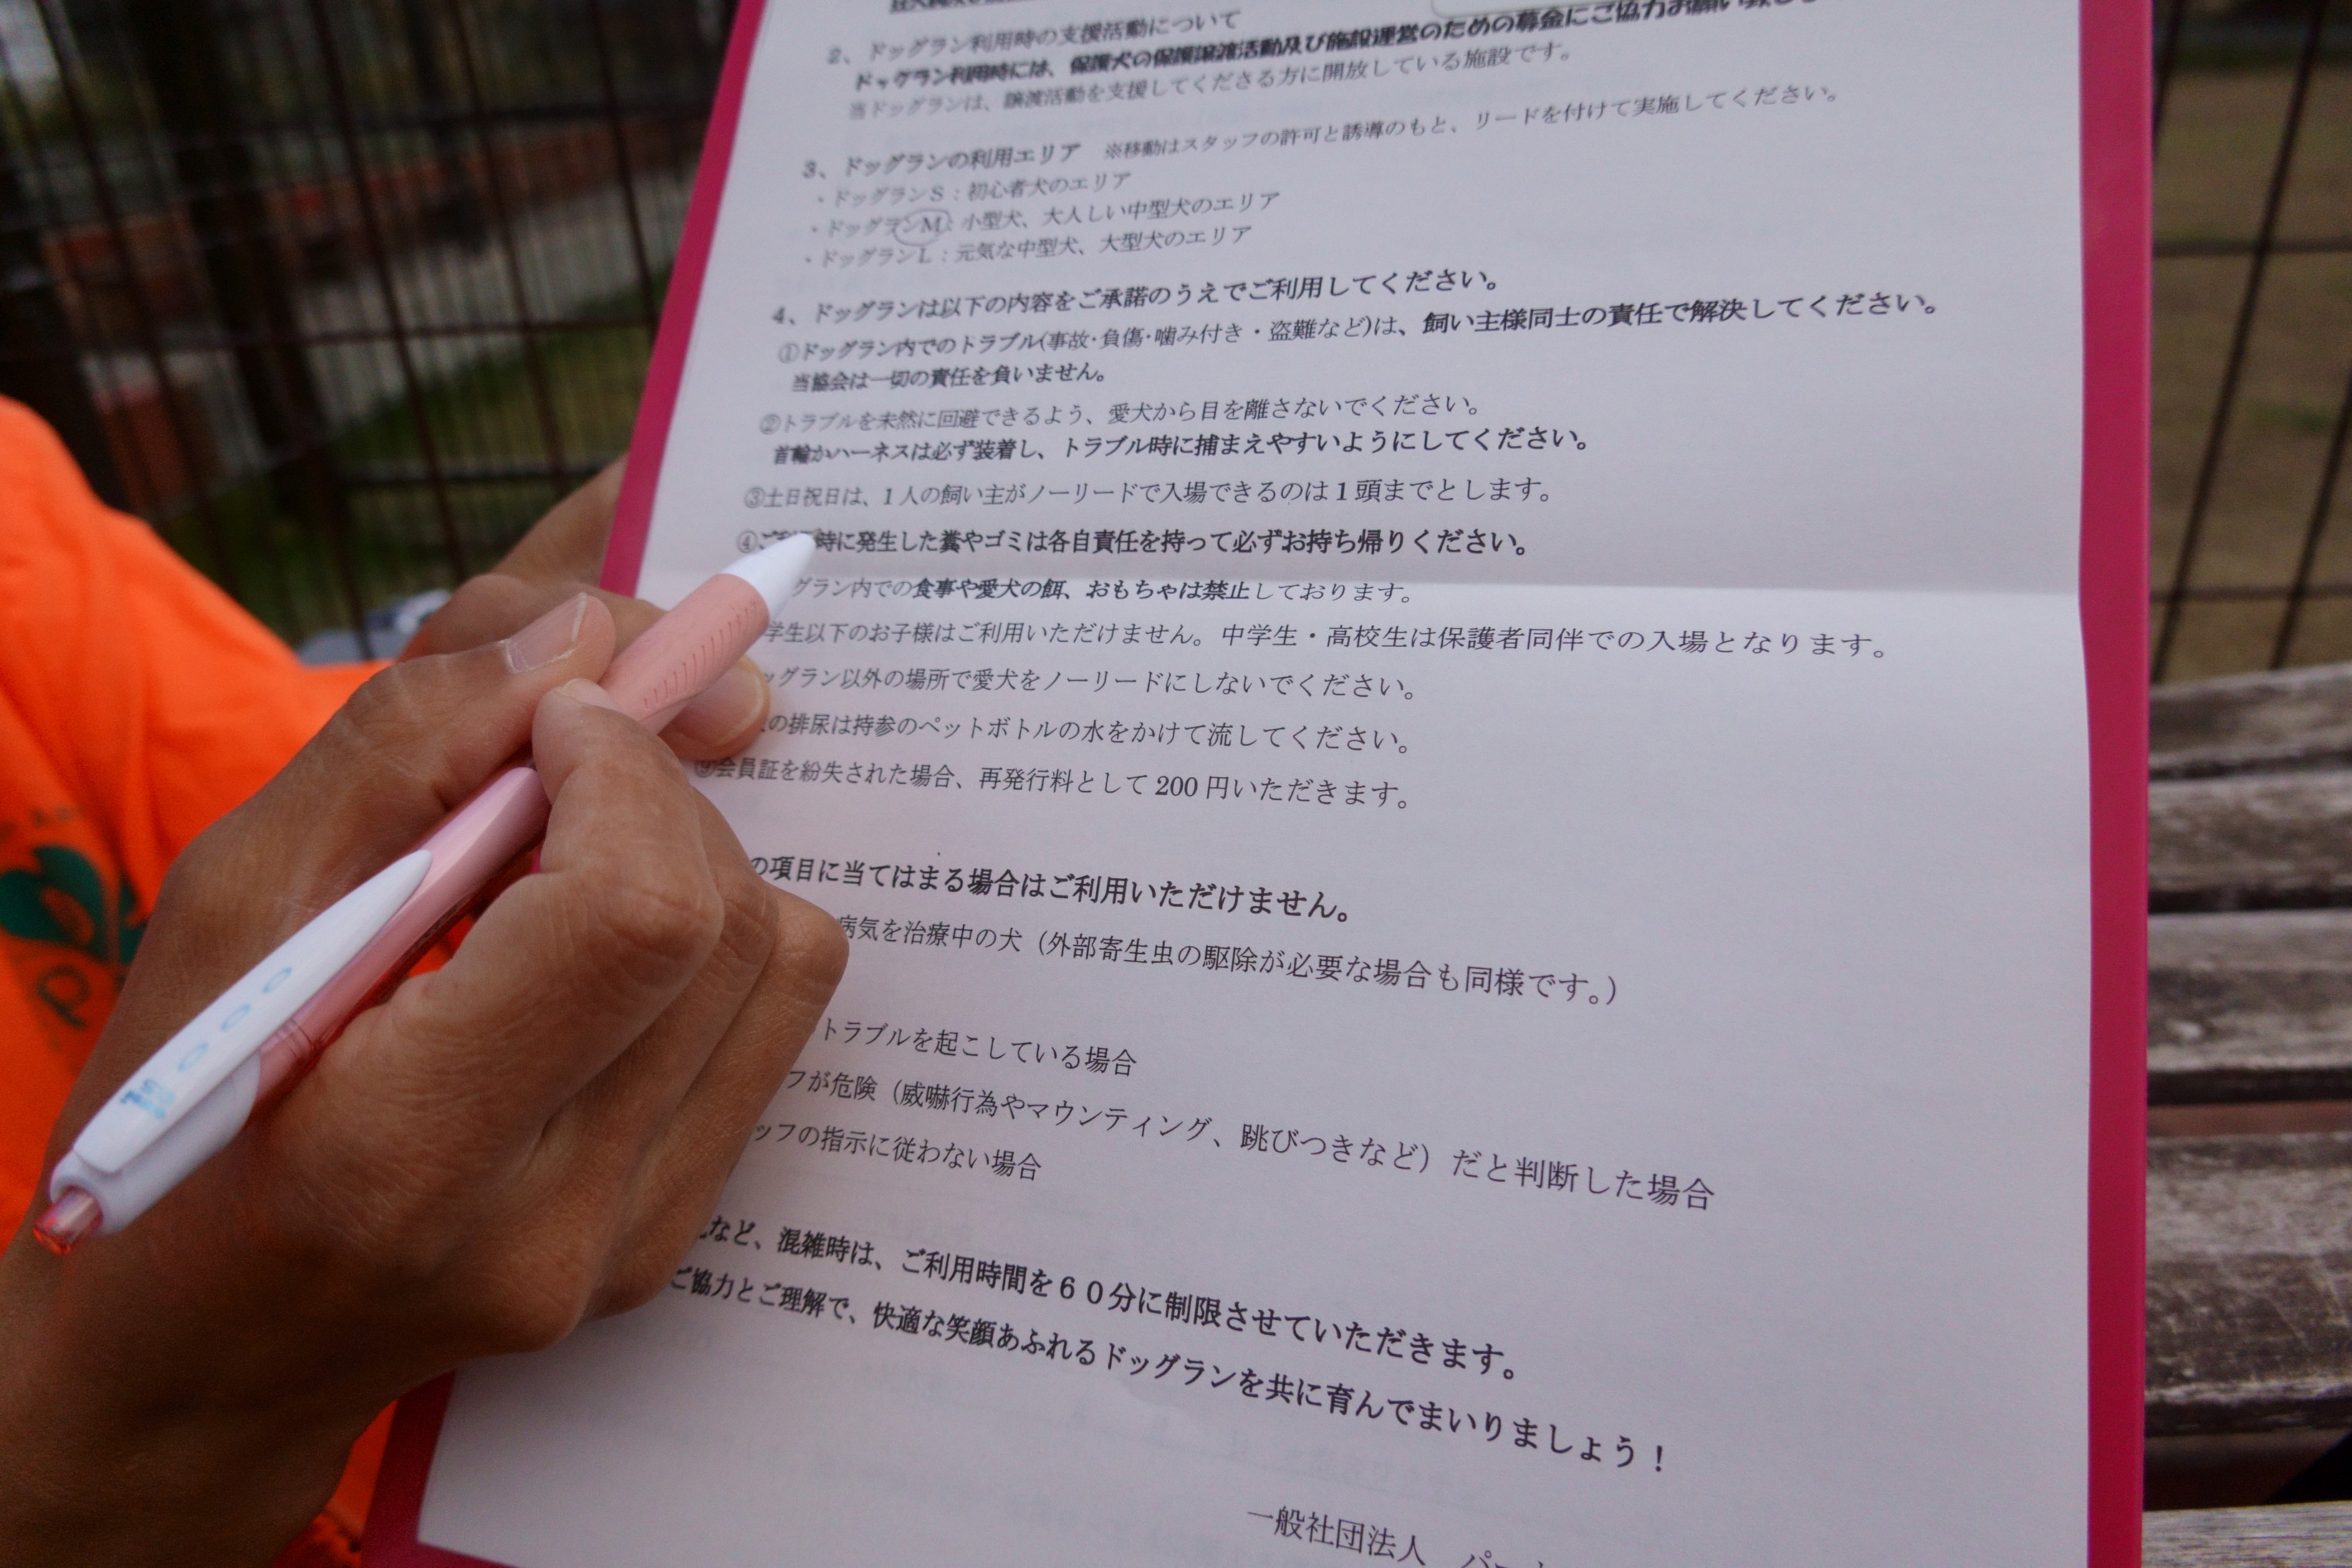 2、ドッグラン利用時の支援活動について
ドッグラン利用時には、保護犬の保護譲渡活動及び施設運営のための募金にご協力お願い致し
当ドッグランは、譲渡活動を支援してくださる方に開放している施設です。
3、ドッグランの利用エリア ※移動はスタッフの許可と誘導のもと、リードを付けて実施してください。
・ドッグランS：初心者犬のエリア
・ドッグランM：小型犬、大人しい中型犬のエリア
・ドッグランL：元気な中型犬、大型犬のエリア
4、ドッグランは以下の内容をご承諾のうえでご利用してください。
①ドッグラン内でのトラブル(事故･負傷･噛み付き・盗難など)は、飼い主様同士の責任で解決してください。
当協会は一切の責任を負いません。
②トラブルを未然に回避できるよう、愛犬から目を離さないでください。
首輪かハーネスは必ず装着し、トラブル時に捕まえやすいようにしてください。
③土日祝日は、1人の飼い主がノーリードで入場できるのは1頭までとします。
④ご利用時に発生した糞やゴミは各自責任を持って必ずお持ち帰りください。
グラン内での食事や愛犬の餌、おもちゃは禁止しております。
学生以下のお子様はご利用いただけません。中学生・高校生は保護者同伴での入場となります。
ッグラン以外の場所で愛犬をノーリードにしないでください。
の排尿は持参のペットボトルの水をかけて流してください。
⑨会員証を紛失された場合、再発行料として200円いただきます。
の項目に当てはまる場合はご利用いただけません。
病気を治療中の犬（外部寄生虫の駆除が必要な場合も同様です。）
トラブルを起こしている場合
フが危険（威嚇行為やマウンティング、跳びつきなど）だと判断した場合
ッフの指示に従わない場合
など、混雑時は、ご利用時間を６０分に制限させていただきます。
ご協力とご理解で、快適な笑顔あふれるドッグランを共に育んでまいりましょう！
一般社団法人